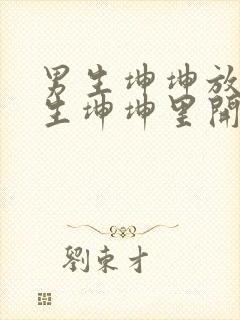 男生坤坤放
生坤坤里開
劉束才